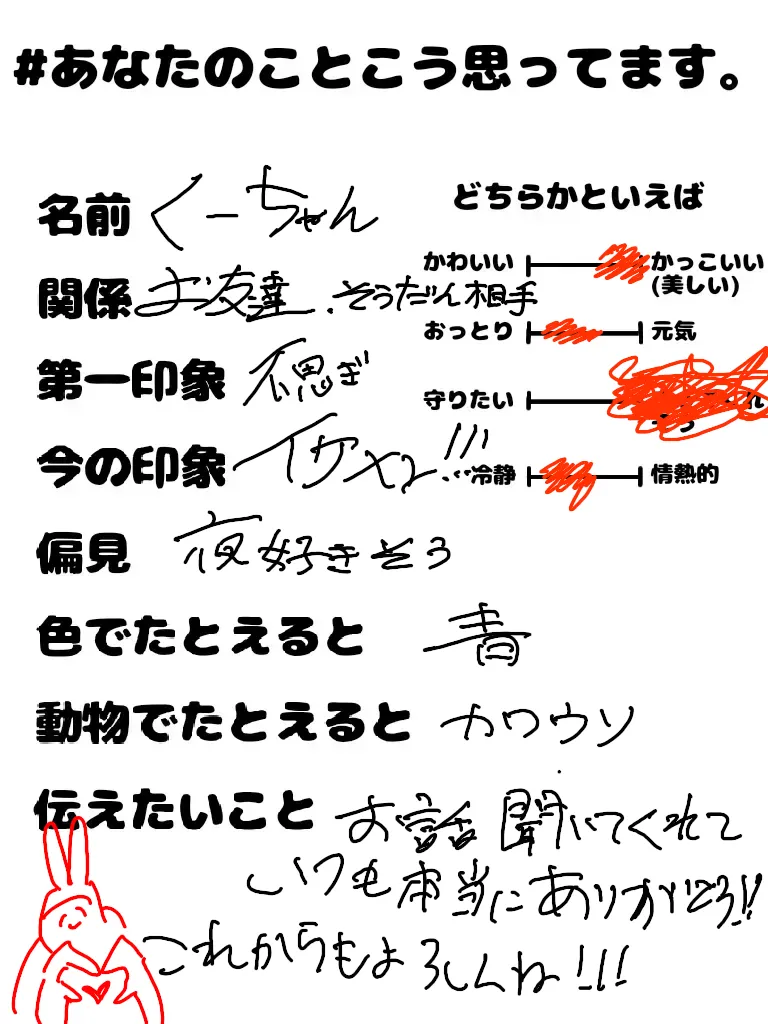 #あなたのことこう思ってます。
名前 くーちゃん
関係 お友達、そうだん相手
第一印象 不思ぎ
今の印象 イケメン!!!…
偏見 夜好きそう
色でたとえると 青
動物でたとえると カワウソ
伝えたいこと お話聞いてくれて
いつも本当にありがとう!!
これからもよろしくね!!!
どちらかといえば
かわいい かっこいい
(美しい)
おっとり 元気
守りたい
冷静 情熱的